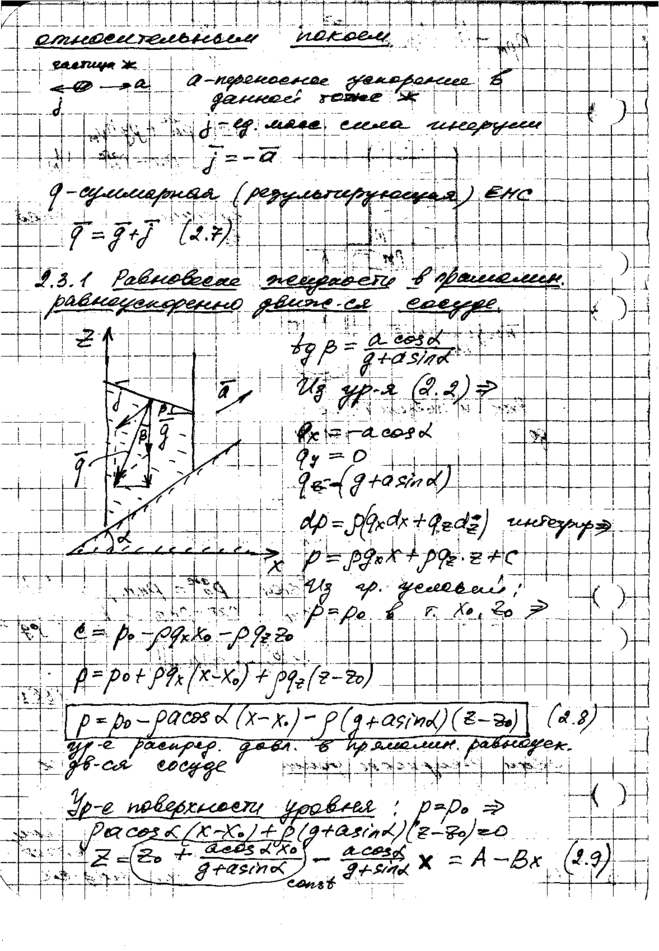 относительным покоем
частица ж
a
j
a - переносное ускорение в
данной точке ж
j - ед. масс. сила инерции
j̅ = -a̅
q - суммарная (результирующая) ЕМС
q̅ = g̅ + j̅ (2.7)
2.3.1 Равновесие жидкости в прямолин.
равноускоренно движ-ся сосуде.
Z
j̅
β
a̅
β
g̅
q̅
α
x
tg β = a cosα / (g + a sinα)
Из ур-я (2.2) ⇒
qx = -a cosα
qy = 0
qz = -(g + a sinα)
dp = ρ(qxdx + qzdz) интегрир ⇒
p = ρqx x + ρqz · z + C
Из гр. условий:
p = p0 в т. x0, z0 ⇒
C = p0 - ρqx x0 - ρqz z0
p = p0 + ρqx (x - x0) + ρqz (z - z0)
p = p0 - ρa cosα (x - x0) - ρ(g + a sinα)(z - z0) (2.8)
ур-е распред. давл. в прямолин. равноуск.
дв-ся сосуде
Ур-е поверхности уровня: p = p0 ⇒
ρa cosα (x - x0) + ρ(g + a sinα)(z - z0) = 0
Z = z0 + a cosα x0 / (g + a sinα) - a cosα / (g + sinα) x = A - Bx (2.9)
const